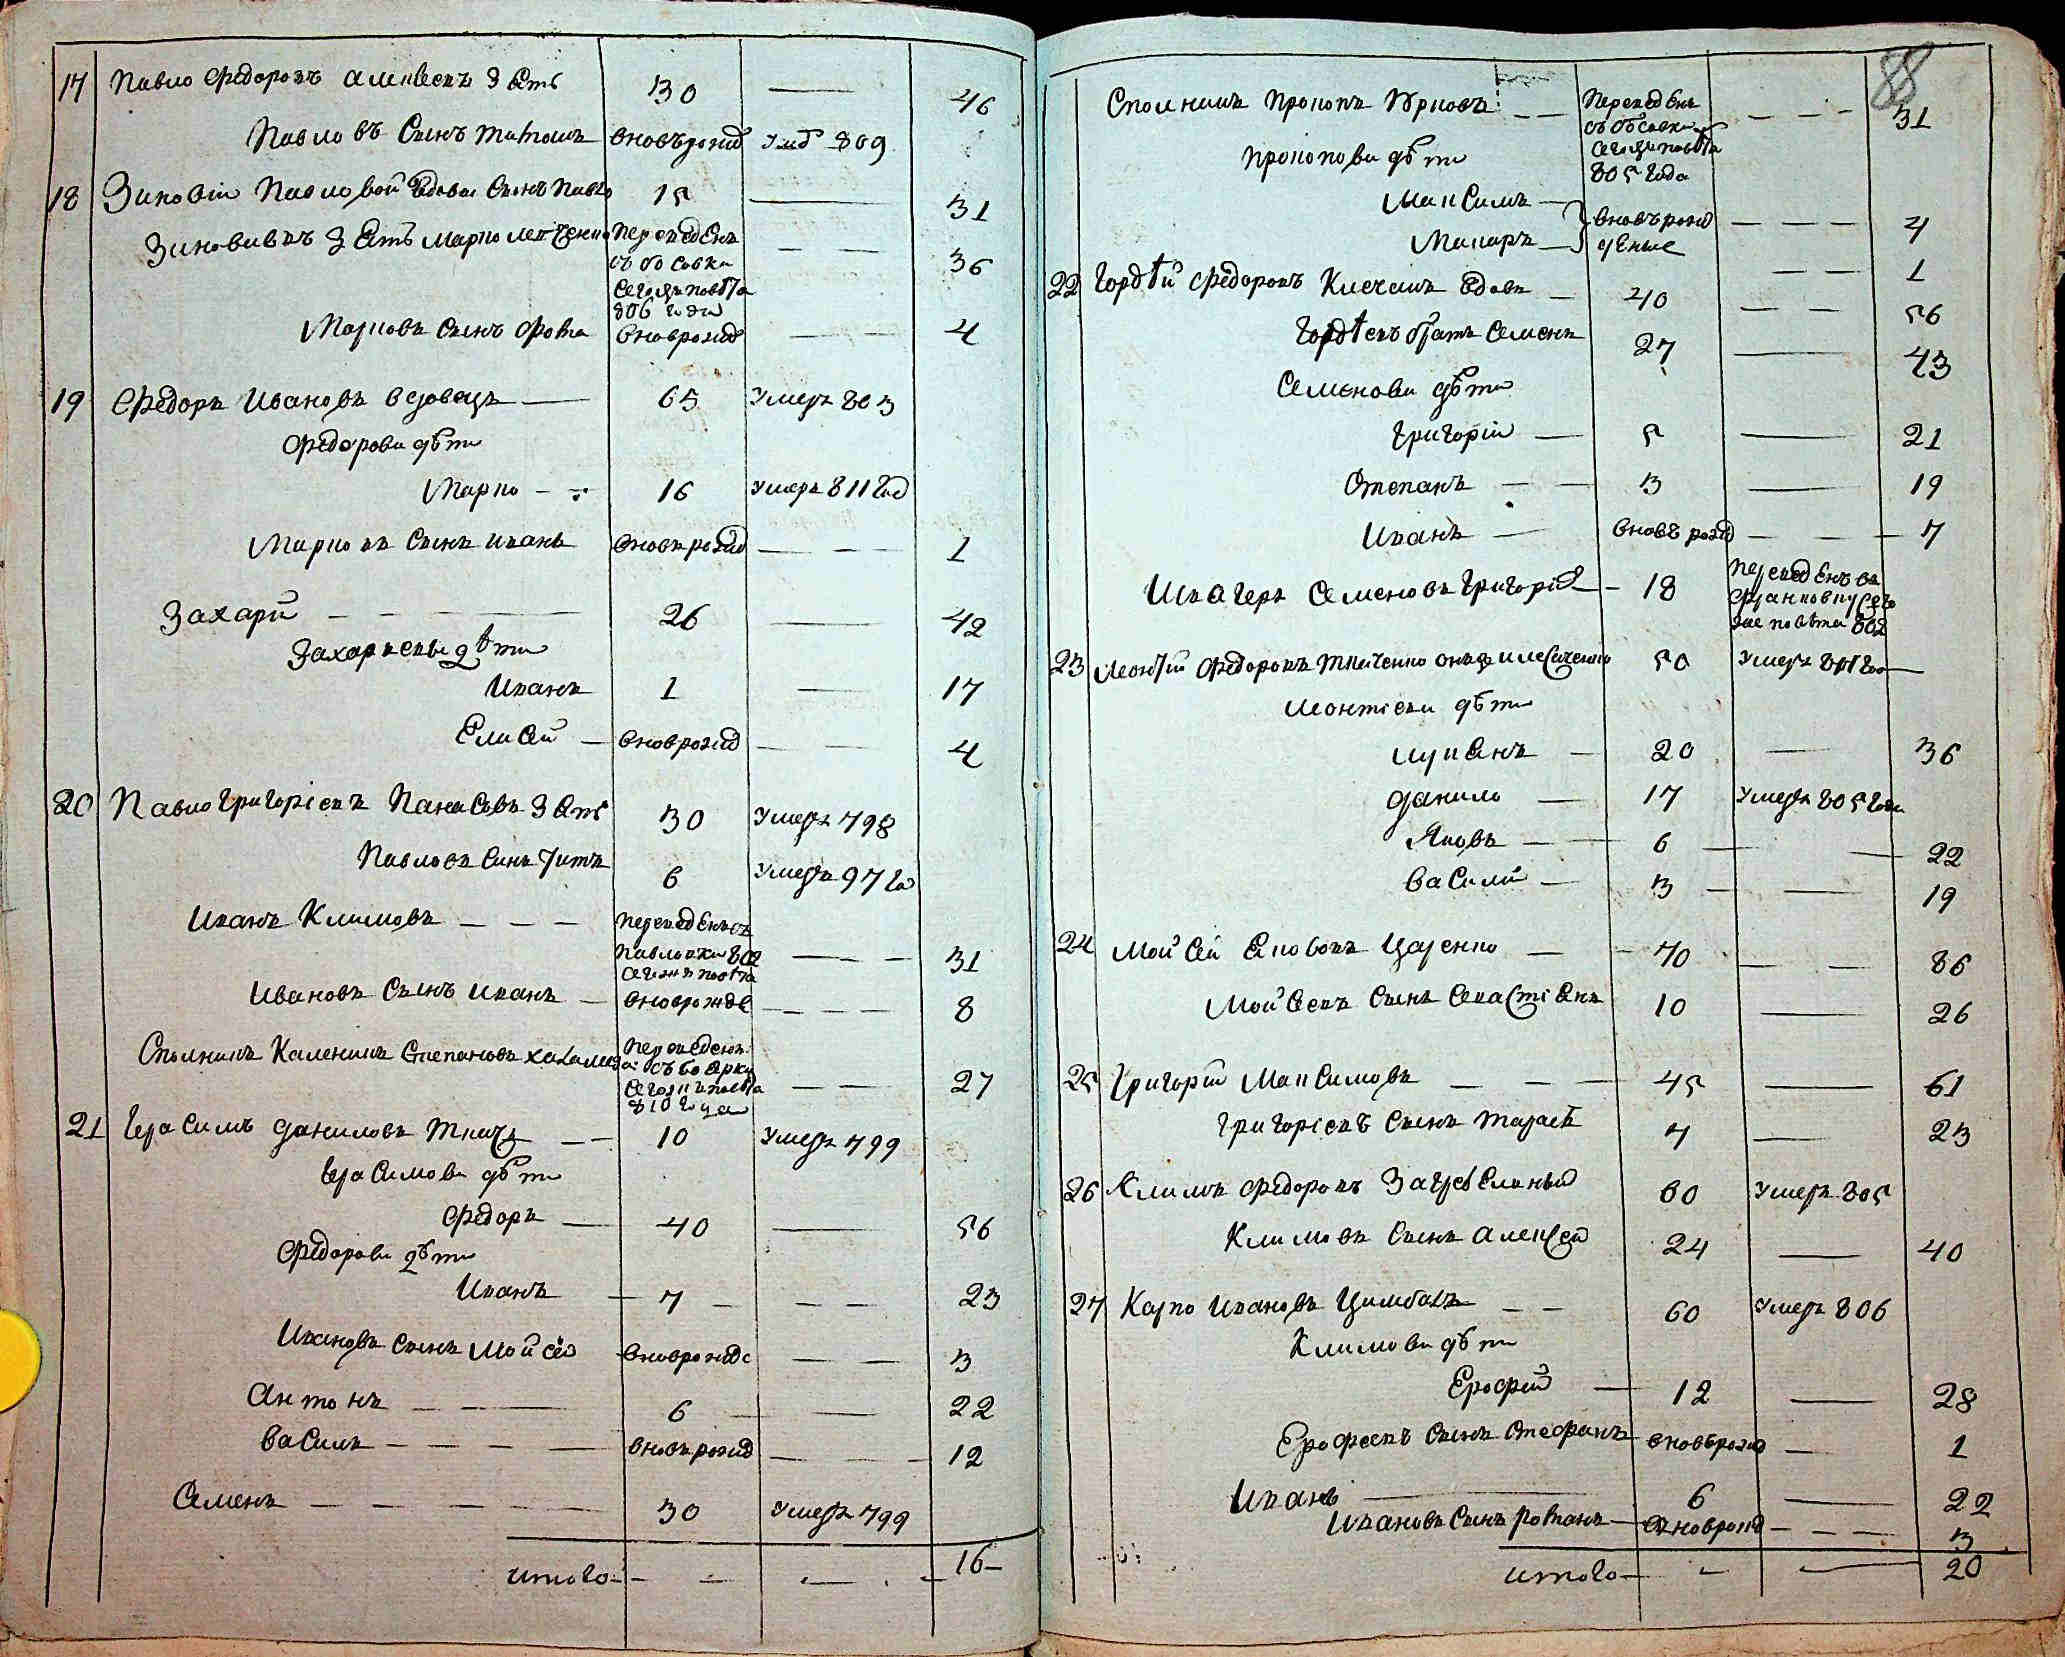 17 Павло Федоровъ Алексеевъ зять 30 — 46
Павловъ сынъ Тимошъ вновърожд умр 809
18 Зиновiи Павловой вдовы сынъ Павло 15 — 31
Зиновиевъ зять Марко переведенъ — — 36
съ
сегожъ повѣта
806 года
Марковъ сынъ Фома вноврожд — — 4
19 Федоръ Ивановъ вдовецъ — 65 умеръ 803
Федорови дѣти
Марко — — 16 умеръ 811 год
Марковъ сынъ Иванъ вновърожд — — — 1
Захарй — — — 26 — 42
Захариевы дѣти
Иванъ 1 — 17
Елисей — вноврожд — — 4
20 Павло Григорiевъ Панасовъ зять 30 умеръ 798
Павловъ синъ Титъ 6 умеръ 97 го
Иванъ Климовъ — — — переведенъ съ
Павловки 802 — — — 31
сегожъ повѣта
Ивановъ сынъ Иванъ — вноврожде — — — — 8
Сполникъ Каленикъ Степановъ переведенъ
съ Боярки
сегожъ повѣта — — 27
810 года
21 Герасимъ Даниловъ Ткачъ — — 10 умеръ 799
Герасимови дѣти
Федоръ — 40 — 56
Федорови дѣти
Иванъ — 7 — — — 23
Ивановъ сынъ Мойсей вноврожде — — — 3
Антонъ — — — 6 — — — 22
Василь — — — — вновърожд — — — — 12
Семенъ — — — — — 30 умеръ 799
итого — — — — — 16 —
88
Сполникъ Прокопъ — — переведенъ — — — 31
съ
Прокопови дѣти сегожъ повѣта
805 года
Максимъ — вновърожд — — — 7
Макаръ — дённые — — 1
22 Гордѣй Федоровъ Клечанъ вдовъ — 40 — — 56
Гордѣевъ братъ Семенъ 27 — 43
Семенови дѣти
Григорiй — 5 — 21
Степанъ — — 3 — 19
Иванъ — вновъ рожд — — — 7
Швагеръ Семеновъ Григорiй — 18 переведенъ въ
сего
же повѣта 802
23 Леонтiй Федоровъ Ткаченко онъже 50 умеръ 801 го —
Леонтiеви дѣти
Лукянъ — 20 — 36
Данило — 17 умеръ 805 года
Яковъ — — 6 — — 22
Василй — 3 — — 19
24 Мойсей Якововъ Царенко — — 70 — — 86
Мойсеевъ сынъ Севастiянъ 10 — 26
25 Григорiй Максимовъ — — — 45 — 61
Григорiевъ сынъ Тарасъ 7 — 23
26 Климъ Федоровъ Загребелный 60 умеръ 805
Климовъ сынъ Алексей 24 — 40
27 Карпо Ивановъ Цимбалъ — — 60 умеръ 806
Климови дѣти
Ерофiй — 12 — 28
Ерофеевъ сынъ Стефанъ вновърожд — 1
Иванъ — 6 — 22
Ивановъ сынъ Романъ — вноврожд — — — 3
итого — — — 20